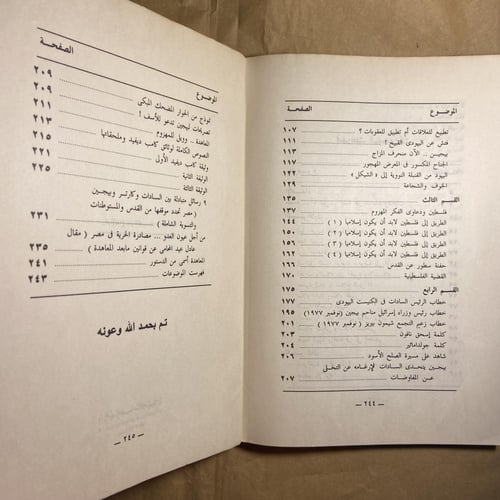 الموضوع الصفحة
تطبيع للعلاقات أم تطبيق للعقوبات ؟ ١٠٧
فتش عن اليهودى القبيح ! ١١١
بيجين .. الآن منحرف المزاج ١١٣
الجناح المكسور فى المعرض المهجور ١١٧
اليهود من القنبلة النووية إلى « الشيكل » ١٢٢
الخوف والشجاعة ١٢٩
القسم الثالث ١٣٥
فلسطين ودعاوى الفكر المهزوم ١٣٧
الطريق إلى فلسطين لابد أن يكون إسلاميا ( ١ ) ١٤٤
الطريق إلى فلسطين لابد أن يكون إسلاميا ( ٢ ) ١٥٠
الطريق إلى فلسطين لابد أن يكون إسلاميا ( ٣ ) ١٥٦
الطريق إلى فلسطين لابد أن يكون إسلاميا ( ٤ ) ١٦٢
حفنة سطور عن القدس ١٦٦
القضية الفلسطينية ١٧٠
القسم الرابع ١٧٥
خطاب الرئيس السادات فى الكنيست اليهودى ١٧٧
خطاب رئيس وزراء إسرائيل مناحم بيجين ( نوفمبر ١٩٧٧ ) ١٩٥
خطاب زعيم التجمع شيمون بيريز ( نوفمبر ١٩٧٧ ) ٢٠١
كلمة إسحق نافون ٢٠٣
كلمة جولدامائير ٢٠٤
شاهد على مسيرة الصلح الأسود ٢٠٦
بيجين يتحدى السادات لإرغامه عن التخلى
عن المفاوضات ٢٠٧
— ٢٤٤ —
الموضوع الصفحة
نموذج من الحوار المضحك المبكى ٢٠٩
تصريحات لبيجين تدعو للأسف ! ٢٠٩
المعاهدة .. وويل للمهزوم ٢١١
النصوص الكاملة لوثائق كامب ديفيد وملحقاتها ٢١٣
وثيقة كامب ديفيد الأولى ٢١٥
الوثيقة الثانية ٢٢١
الوثيقة الثالثة ٢٢٥
٩ رسائل متبادلة بين السادات وكارتر وبيجين
( مصر تحدد موقفها من القدس والمستوطنات
والتسوية الشاملة ) ٢٣١
من أجل عيون العدو ... مصادرة الحرية فى مصر ( مقال
عادل عيد المحامى عن قوانين مابعد المعاهدة ) ٢٣٥
المعاهدة أسمى من الدستور ٢٤١
فهرست الموضوعات ٢٤٣
تم بحمد الله وعونه
— ٢٤٥ —